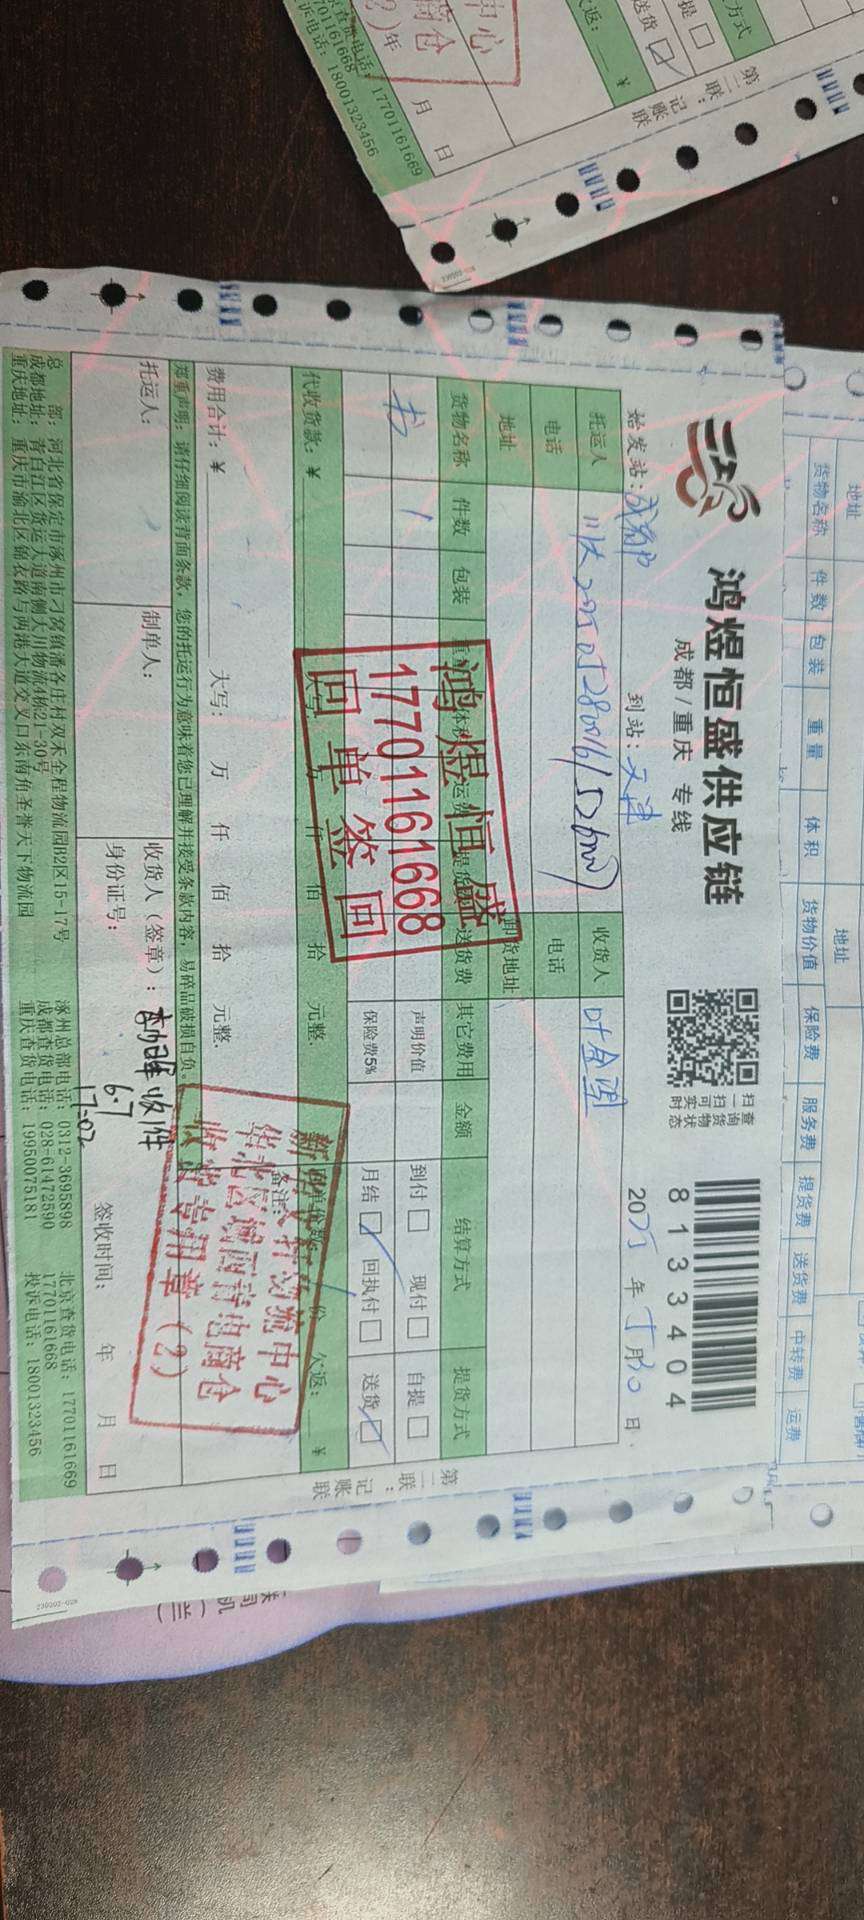 鸿煜恒盛供应链
成都/重庆 专线
扫一扫 查询货物实时状态
8133404
始发站：成都
到站：天津
2025年 月30日
托运人
收货人 叶金
电话
电话
地址
卸货地址
货物名称 件数 包装 重量 体积 运费 提货费 送货费 其它费用 金额 结算方式 提货方式
书 1
声明价值
到付 现付
自提
保险费5%
月结 回执付
送货
代收货款：￥
大写 万 仟 佰 拾 元整.
备注：
份 欠返： ￥
费用合计：￥
大写： 万 仟 佰 拾 元整.
郑重声明：请仔细阅读背面条款，您的托运行为意味着您已理解并接受条款内容，易碎品破损自负。
托运人：
制单人：
收货人（签章）：
收件
6.7
17:02
身份证号：
签收时间： 年 月 日
总 部：河北省保定市涿州市刁窝镇潘各庄村双禾全程物流园B2区15-17号
成都地址：青白江区货运大道南侧大川物流4栋21-30号
重庆地址：重庆市渝北区锦衣路与两港大道交叉口东南角圣誉天下物流园
涿州总部电话：0312-3695898
成都查货电话：028-61472590
重庆查货电话：19950075181
北京查货电话：17701161669
17701161668
投诉电话：18001323456
鸿煜恒盛
17701161668
回单签回
收货专用章（2）
第二联：记账联
地址
货物名称 件数 包装 重量 体积 货物价值 保险费 服务费 提货费 送货费 中转费 运费
地址
方式
提
送货
欠返： ￥
第二联：记账联
中心
商仓
月 日
北京查货电话：17701161669
17701161668
投诉电话：18001323456